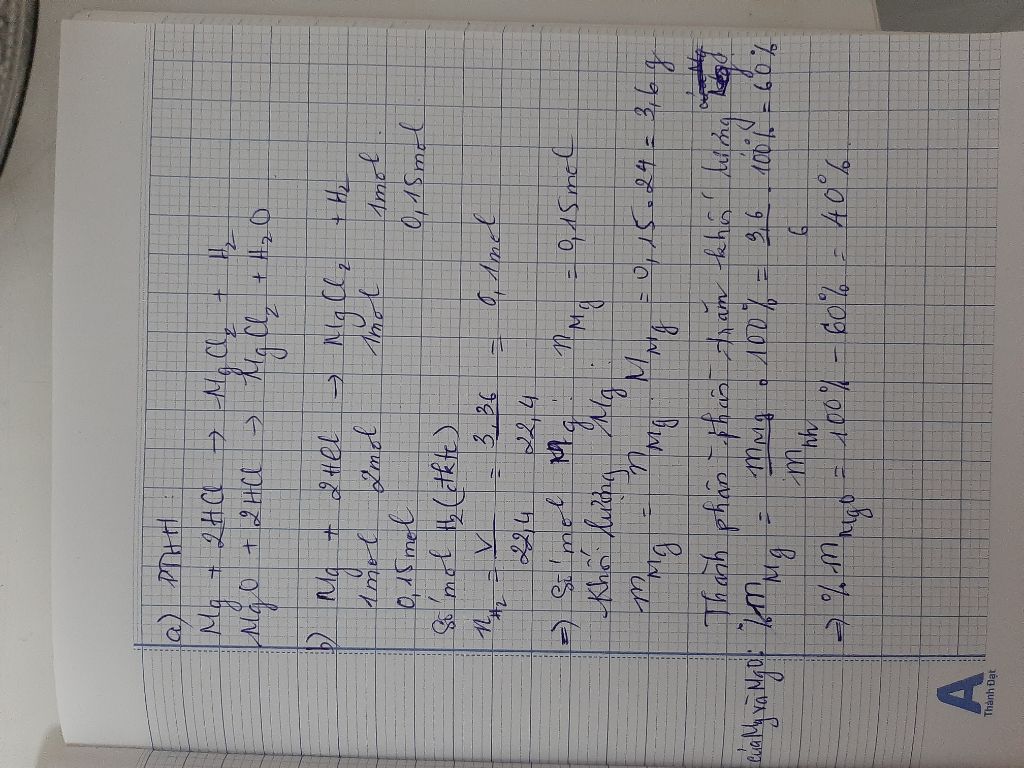 a) PTHH:
Mg + 2HCl → MgCl₂ + H₂
MgO + 2HCl → MgCl₂ + H₂O
b) Mg + 2HCl → MgCl₂ + H₂
1mol 2mol 1mol 1mol
0,15mol 0,15mol
Số mol H₂ (đktc)
n_H₂ = V/22,4 = 3,36/22,4 = 0,1mol
=) Số mol Mg: n_Mg = 0,15mol
Khối lượng Mg:
m_Mg = n_Mg . M_Mg = 0,15 . 24 = 3,6 g
Thành phần phần trăm khối lượng
của Mg và MgO:
%m_Mg = m_Mg/m_hh . 100% = 3,6/6 . 100% = 60%
=) %m_MgO = 100% - 60% = 40%
A
Thành Đạt